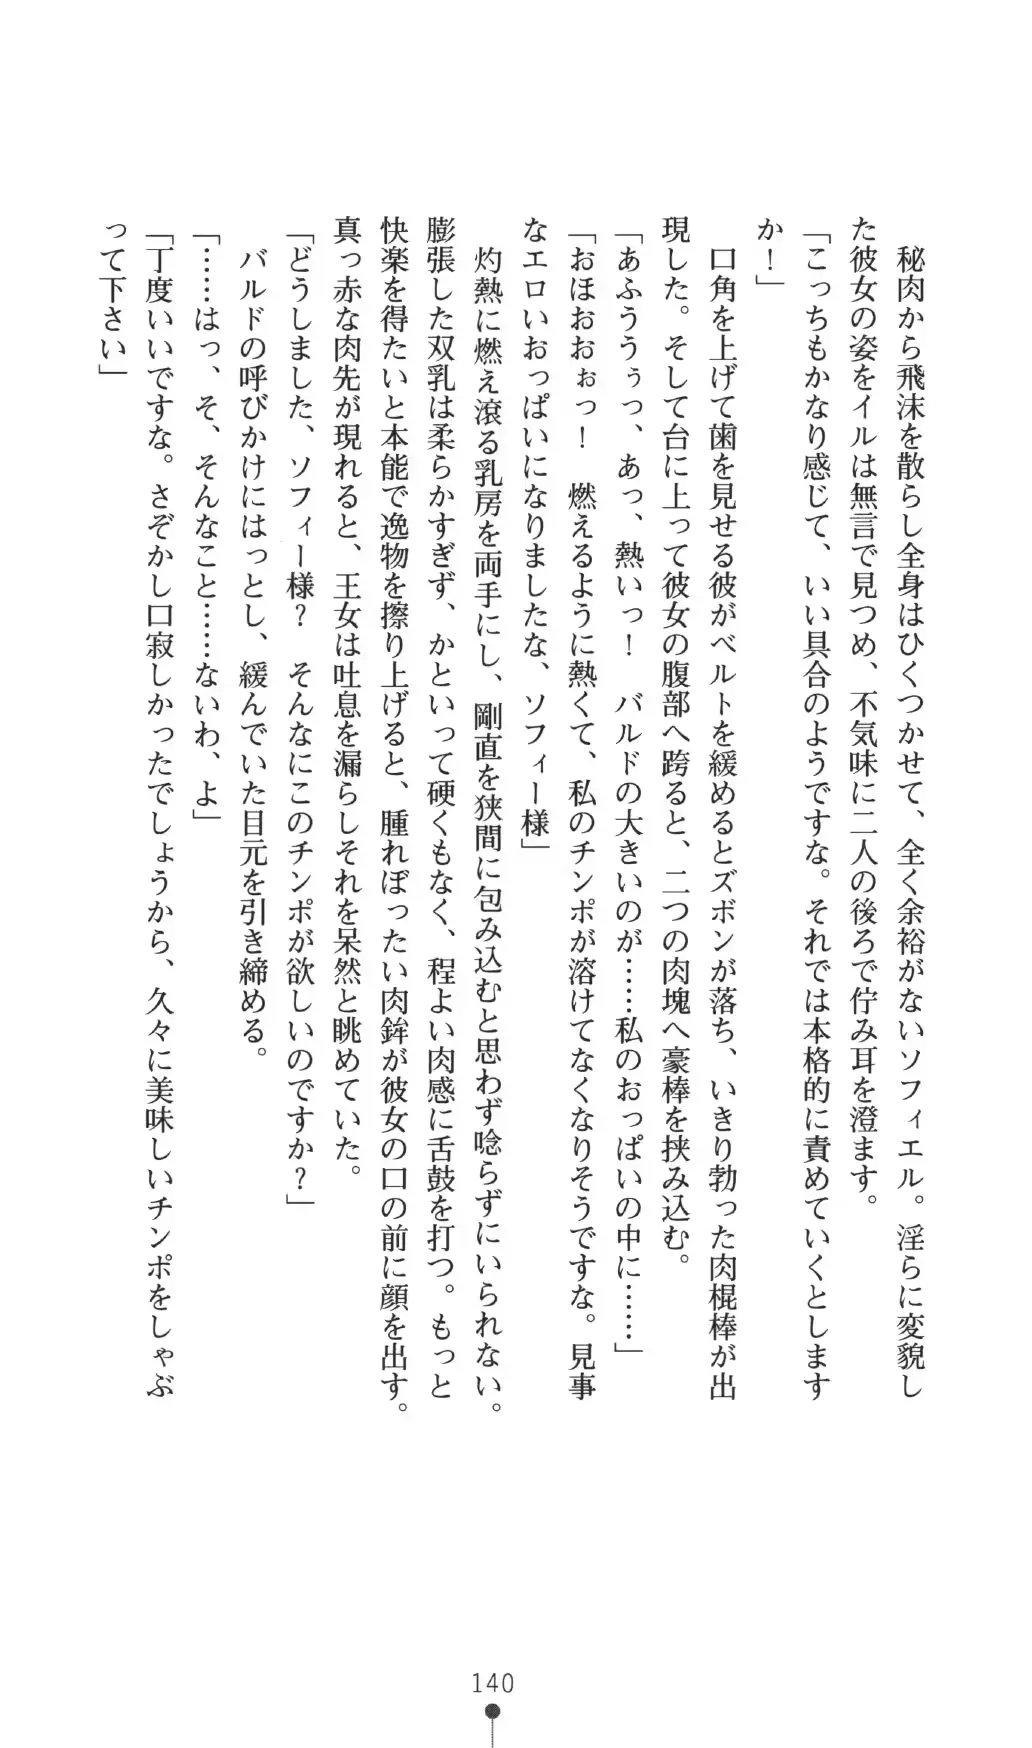 秘肉から飛沫を散らし全身はひくつかせて、全く余裕がないソフィエル。淫らに変貌し
た彼女の姿をイルは無言で見つめ、不気味に二人の後ろで佇み耳を澄ます。
「こっちもかなり感じて、いい具合のようですな。それでは本格的に責めていくとします
か！」
口角を上げて歯を見せる彼がベルトを緩めるとズボンが落ち、いきり勃った肉棍棒が出
現した。そして台に上って彼女の腹部へ跨ると、二つの肉塊へ豪棒を挟み込む。
「あふううぅっ、あっ、熱いっ！　バルドの大きいのが……私のおっぱいの中に……」
「おほおおぉっ！　燃えるように熱くて、私のチンポが溶けてなくなりそうですな。見事
なエロいおっぱいになりましたな、ソフィー様」
灼熱に燃え滾る乳房を両手にし、剛直を狭間に包み込むと思わず唸らずにいられない。
膨張した双乳は柔らかすぎず、かといって硬くもなく、程よい肉感に舌鼓を打つ。もっと
快楽を得たいと本能で逸物を擦り上げると、腫れぼったい肉鉾が彼女の口の前に顔を出す。
真っ赤な肉先が現れると、王女は吐息を漏らしそれを呆然と眺めていた。
「どうしました、ソフィー様？　そんなにこのチンポが欲しいのですか？」
バルドの呼びかけにはっとし、緩んでいた目元を引き締める。
「……はっ、そ、そんなこと……ないわ、よ」
「丁度いいですな。さぞかし口寂しかったでしょうから、久々に美味しいチンポをしゃぶ
って下さい」
140